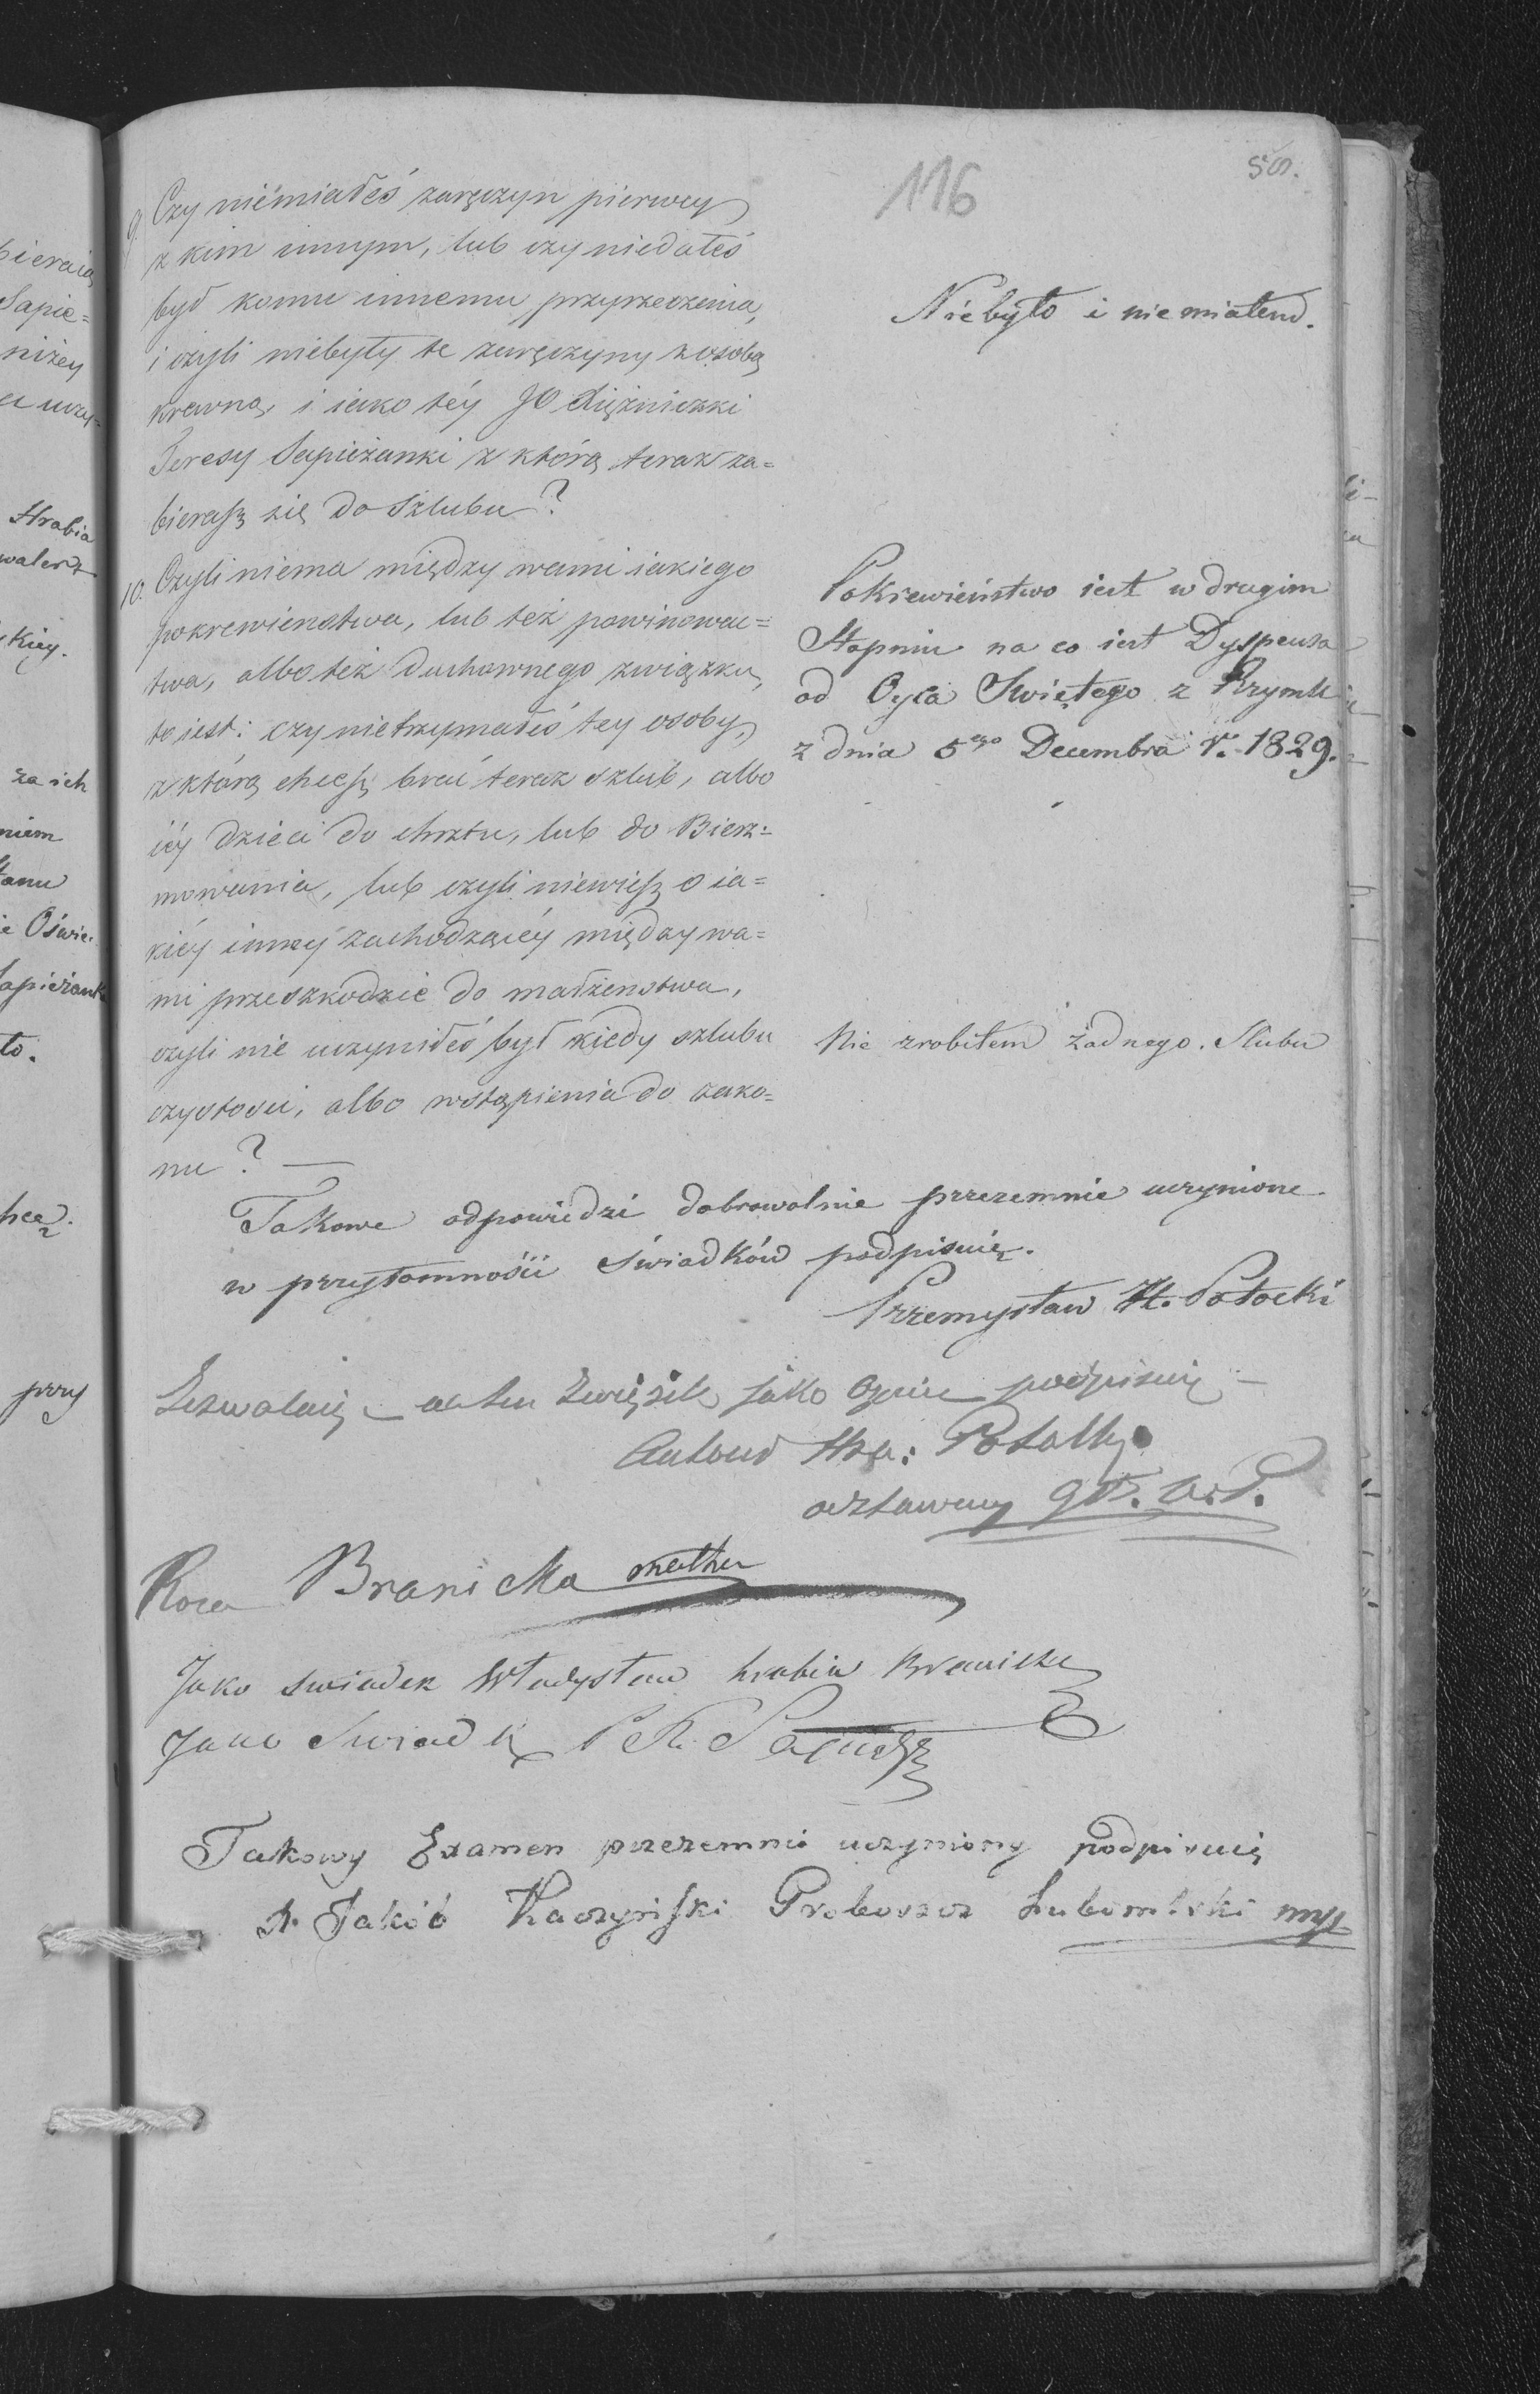 116
58.
9. Czy niémiałéś zaręczyn pierwey
z kim innym, lub czy niedałeś
był komu innemu przyrzeczenia,
i czyli niebyły te zaręczyny z osobą
krewną, i iako téy JO Xiężniczki
Teresy Sapieżanki z którą teraz za=
bierasz się do Szlubu?
Niebyło i nie miałem.
10. Czyli niema między wami iakiego
pokrewienstwa, lub też powinowac=
twa, albo też duchownego związku,
to iest: czy nietrzymałeś tey osoby,
z którą chcesz brać teraz szlub, albo
iéy dzieci do chrztu, lub do Bierz=
mowania, lub czyli niewiesz o ia=
kiéy innéy zachodzącéy między wa=
mi przeszkodzie do małżenstwa,
czyli nie uczyniłeś był kiedy szlubu
czystosci, albo wstąpienia do zako=
nu? —
Pokrewieństwo iest w drugim
Stopniu na co iest Dyspensa
od Oyca Swiętego z Rzymu
z dnia 5ego Decembra r. 1829.
Nie zrobiłem żadnego Slubu
Takowe odpowiedzi dobrowolnie przezemnie uczynione
w przytomności Świadków podpisuię.
Przemysław H. Potocki
Zezwalaię na ten Związek jako Oyciec podpisuię —
Antoni Hra: Potocky
odstawny
Roza Branicka matka
Jako swiadek Władysław hrabia Branicki
Jako Swiadek P. X. Sapieha
Takowy Examen przezemnie uczyniony podpisuię
X. Jakób Kaczyński Proboszcz Lubomlski mp